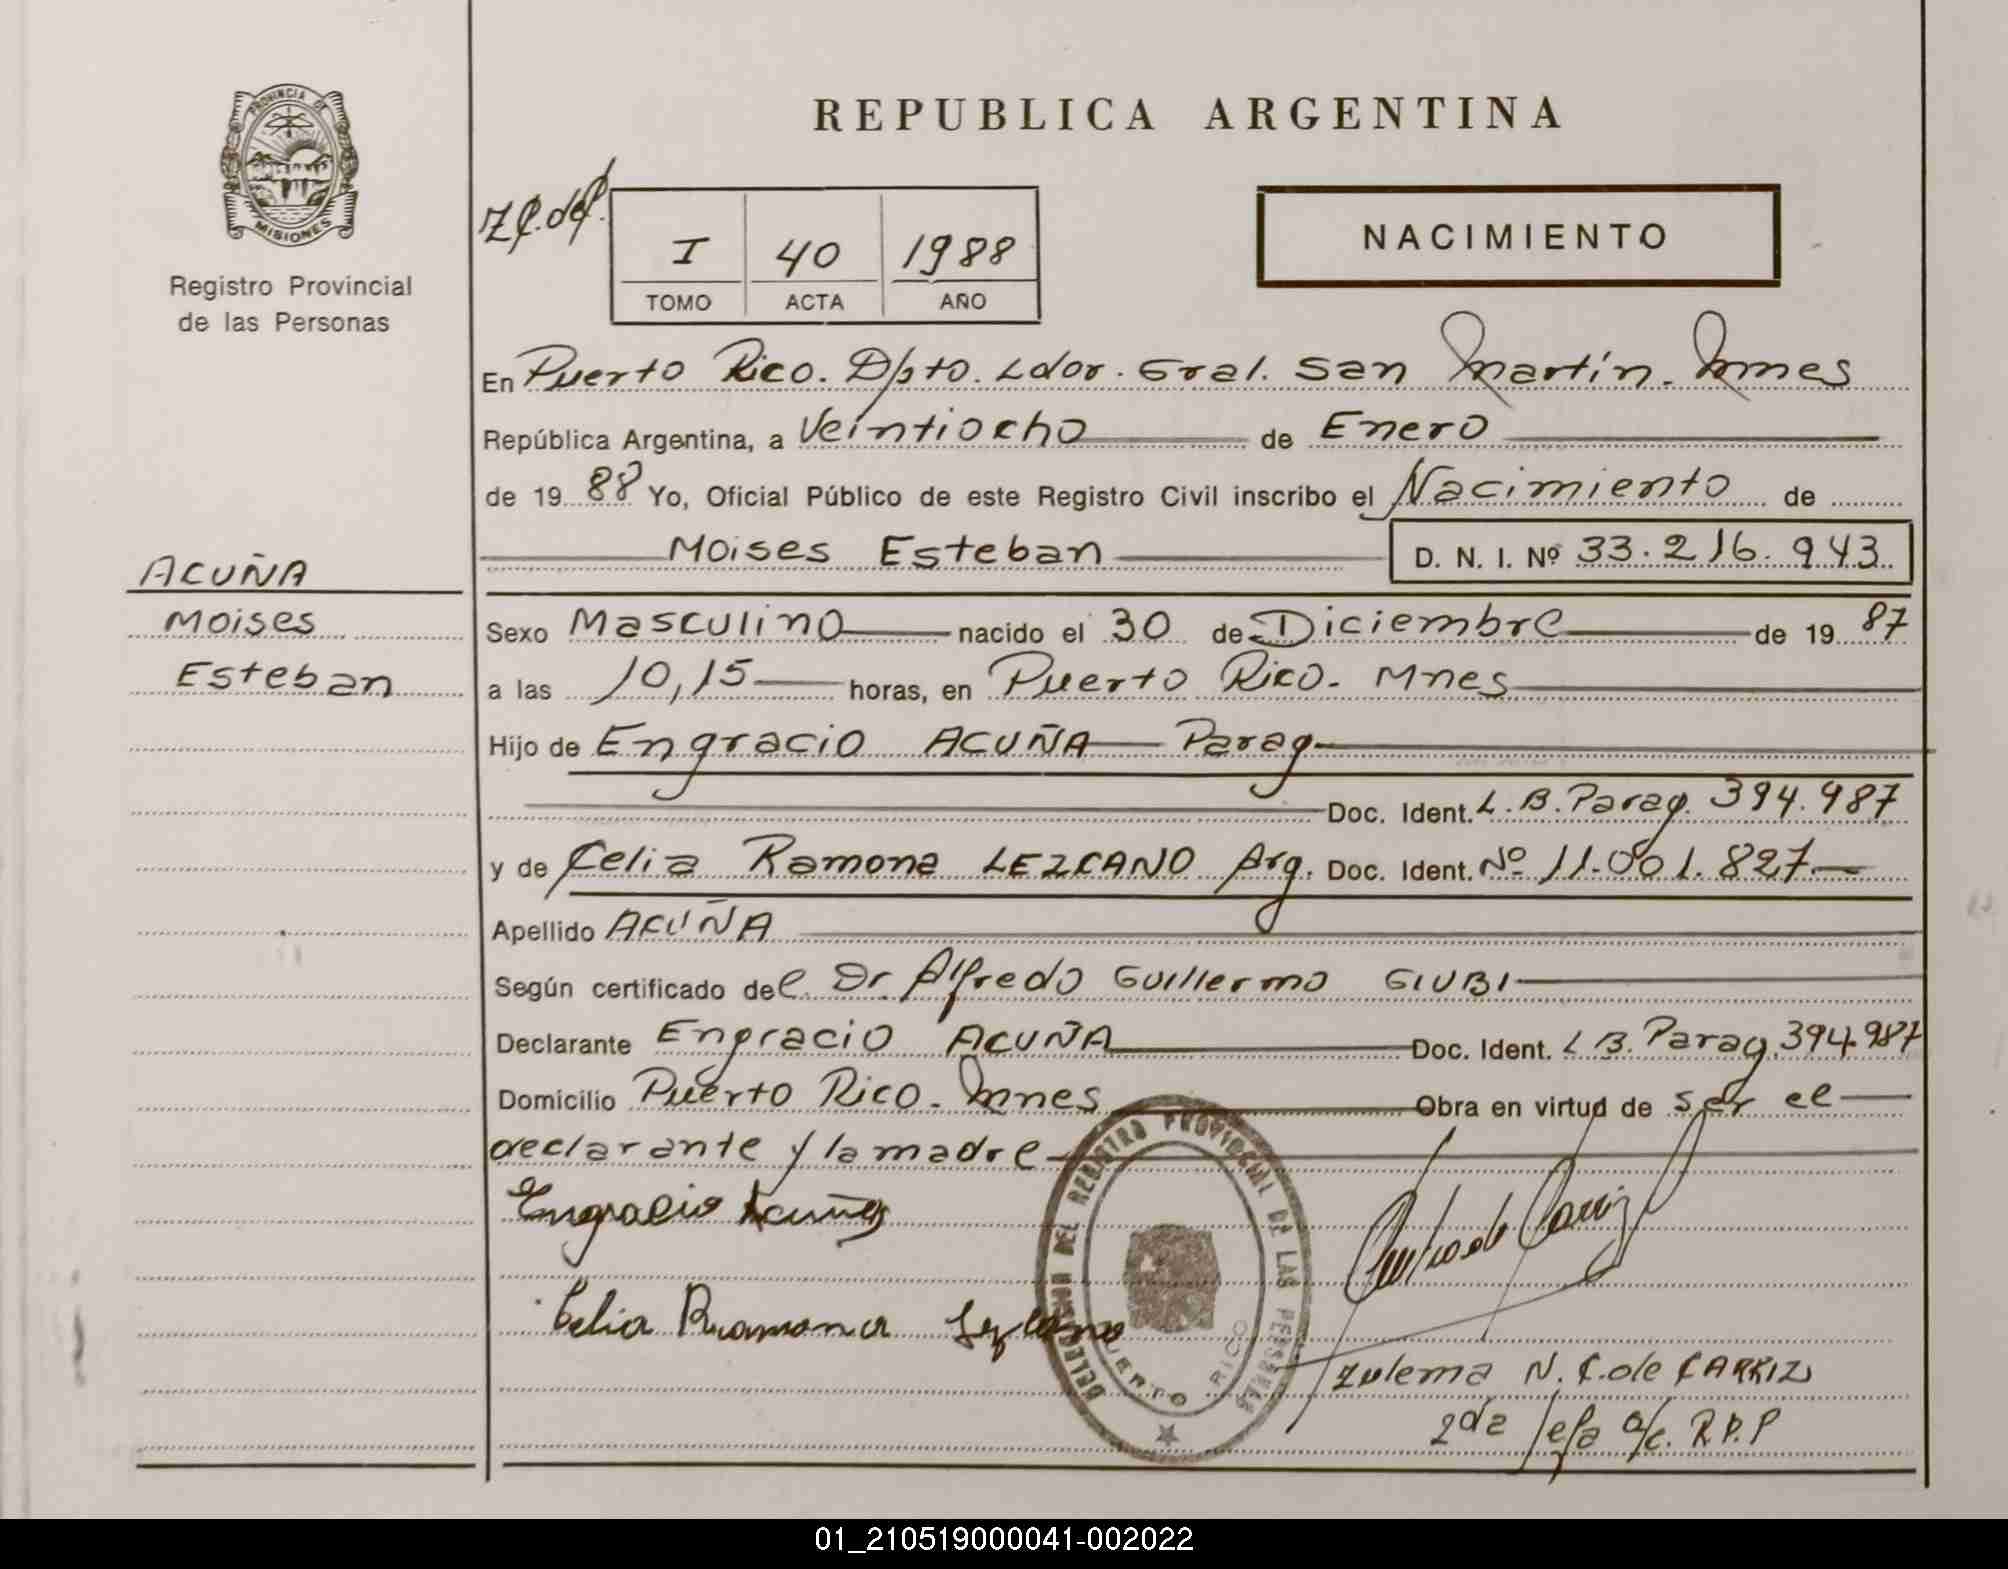 REPUBLICA ARGENTINA
PROVINCIA DE
MISIONES
Registro Provincial
de las Personas
I 40 1988
TOMO ACTA AÑO
NACIMIENTO
En Puerto Rico. Dpto. Ldor. Gral. San Martín. Mnes
República Argentina, a Veintiocho de Enero
de 1988 Yo, Oficial Público de este Registro Civil inscribo el Nacimiento de
Moises Esteban D. N. I. Nº 33.216.943
ACUÑA
Moises
Esteban
Sexo Masculino nacido el 30 de Diciembre de 1987
a las 10,15 horas, en Puerto Rico. Mnes
Hijo de Engracio ACUÑA Parag
Doc. Ident. L.B. Parag. 394.987
y de Celia Ramona LEZCANO Arg. Doc. Ident. Nº 11.001.827
Apellido ACUÑA
Según certificado del Dr Alfredo Guillermo GIUBI
Declarante Engracio ACUÑA Doc. Ident. L B. Parag. 394.987
Domicilio Puerto Rico. Mnes Obra en virtud de ser el
declarante y la madre
Engracio Acuña
Celia Ramona Lezcano
DELEGACION DEL REGISTRO PROVINCIAL DE LAS PERSONAS
PUERTO RICO
Zulema N. C. de CARRIZ
2da Jefa a/c. R.P.P
01_210519000041-002022